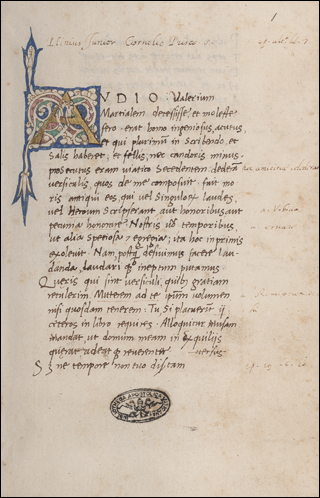 Plinius Junior Cornelio Prisco S.
AVDIO Valerium
Martialem decessisse, et moleste
fero. erat homo ingeniosus, acutus,
et qui plurimum in Scribendo et
Salis haberet, et fellis, nec candoris minus.
prosecutus eram viatico Secedentem dederam
versiculis, quos de me composuit. fuit mo
ris antiqui eos, qui vel Singulorum laudes,
vel Scripserant aut honoribus, aut
pecunia Nostris uero temporibus,
ut alia Speciosa et egregia, ita hoc inprimis
exoleuit. Nam postq desiuimus facere lau-
danda, laudari q ineptum putamus.
Queris qui sint versiculi, quib gratiam
retulerim. Mitterem ad te ipsum volumen
nisi quosdam tenerem: Tu, Si placuerit ij
ceteros in libro requires. Alloquitur Musam
Mandat, ut domum meam in exquilijs
querat adeat q reuerenter versus
ne tempore non tuo disertam